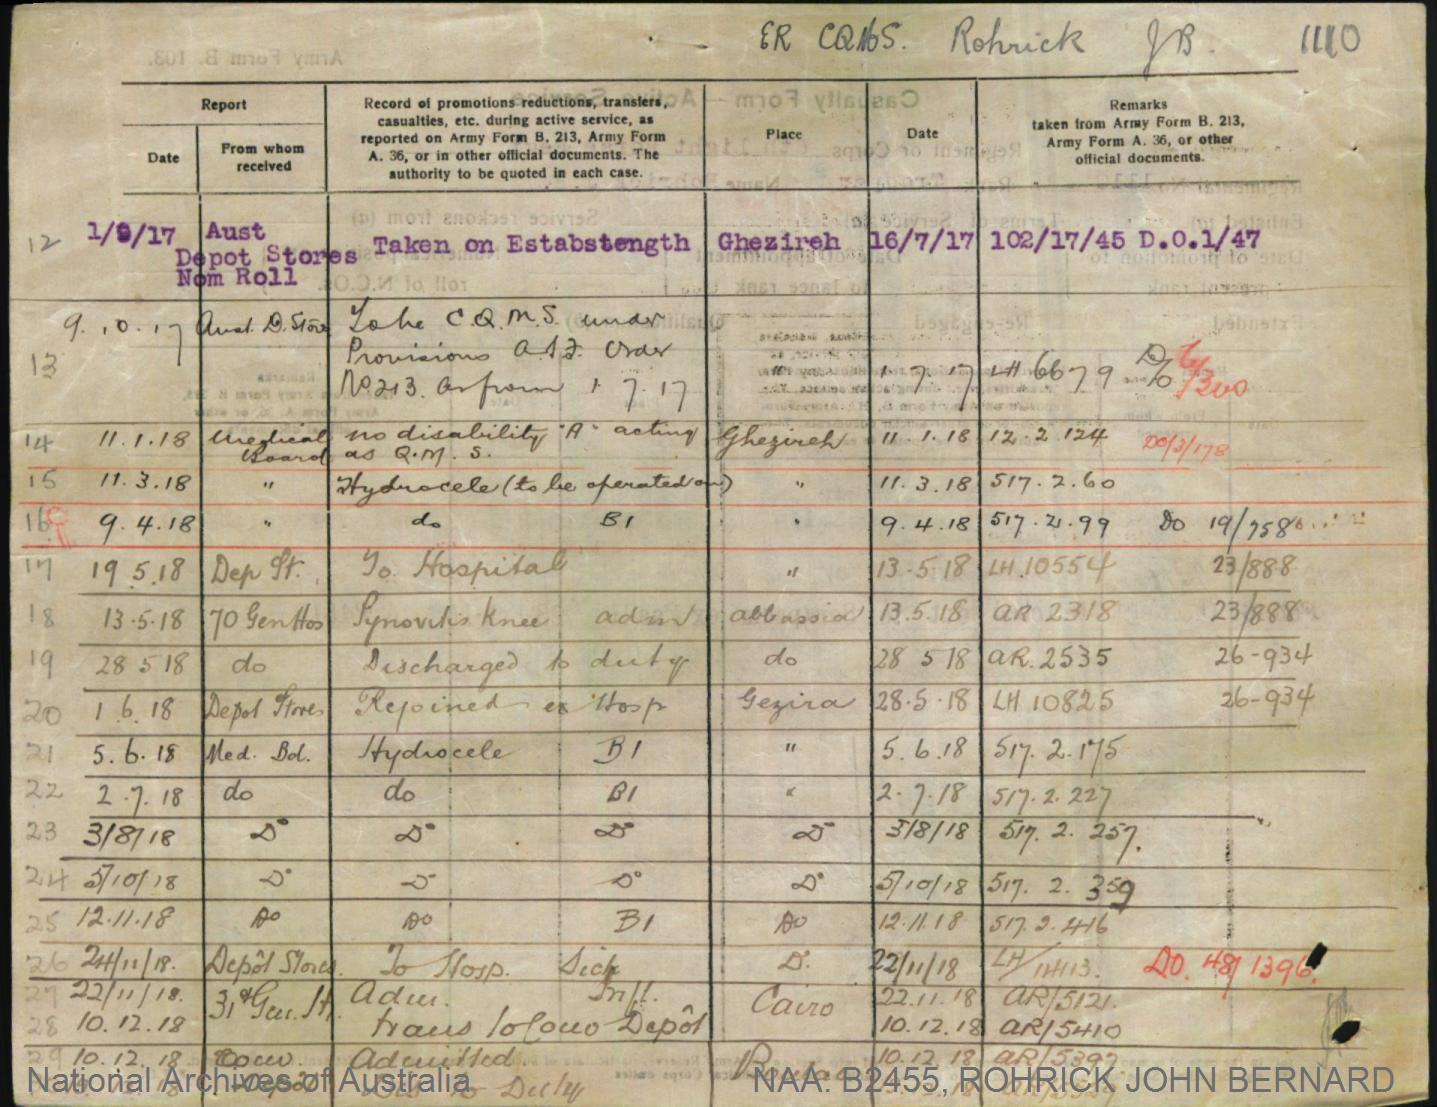 ER CQMS. Rohrick JB. 1110
Army Form B. 103.
Report
Date
From whom received
Record of promotions reductions, transfers,
casualties, etc. during active service, as
reported on Army Form B. 213, Army Form
A. 36, or in other official documents. The
authority to be quoted in each case.
Place
Date
Remarks
taken from Army Form B. 213,
Army Form A. 36, or other
official documents.
12 1/8/17 Aust Depot Stores Nom Roll Taken on Estabstength Ghezireh 16/7/17 102/17/45 D.O.1/47
13 9.10.17 Aust. D. Store To be C.Q.M.S. under
Provisions A.I.F. Order
No 213. as from 1 7.17 " 1.7.17 LH 6679 D/o 6/300
14 11.1.18 Medical Board no disability "A" acting
as Q.M.S. Ghezireh 11.1.18 12.2.124 DO/3/178
15 11.3.18 " Hydrocele (to be operated on) " 11.3.18 517.2.60
16 9.4.18 " do B1 " 9.4.18 517.2.99 Do 19/758
17 19.5.18 Dep St. To Hospital " 13.5.18 LH.10554 23/888
18 13.5.18 70 Gen Hos Synovitis Knee adm abbassia 13.5.18 AR 2318 23/888
19 28 5 18 do Discharged to duty do 28 5 18 AR.2535 26-934
20 1 6.18 Depot Stores Rejoined ex Hosp Gezira 28.5.18 LH 10825 26-934
21 5.6.18 Med. Bd. Hydrocele B1 " 5.6.18 517.2.175
22 2.7.18 do do B1 " 2.7.18 517.2.227
23 3/8/18 Do Do Do Do 3/8/18 517.2.257.
24 5/10/18 Do Do Do Do 5/10/18 517.2.359
25 12.11.18 Do Do B1 Do 12.11.18 517.2.416
26 24/11/18. Depôt Stores. To Hosp. Sick Do. 22/11/18 LH/14113. DO. 48/1396.
27 22/11/18. 31st Gen. H. Adm. Infl. Cairo 22.11.18 AR/5121.
28 10.12.18 trans to Conv Depôt 10.12.18 AR/5410
29 10.12.18 Conv Depôt Admitted. 10.12.18 AR/5397
Dis to Duty
National Archives of Australia
NAA: B2455, ROHRICK JOHN BERNARD